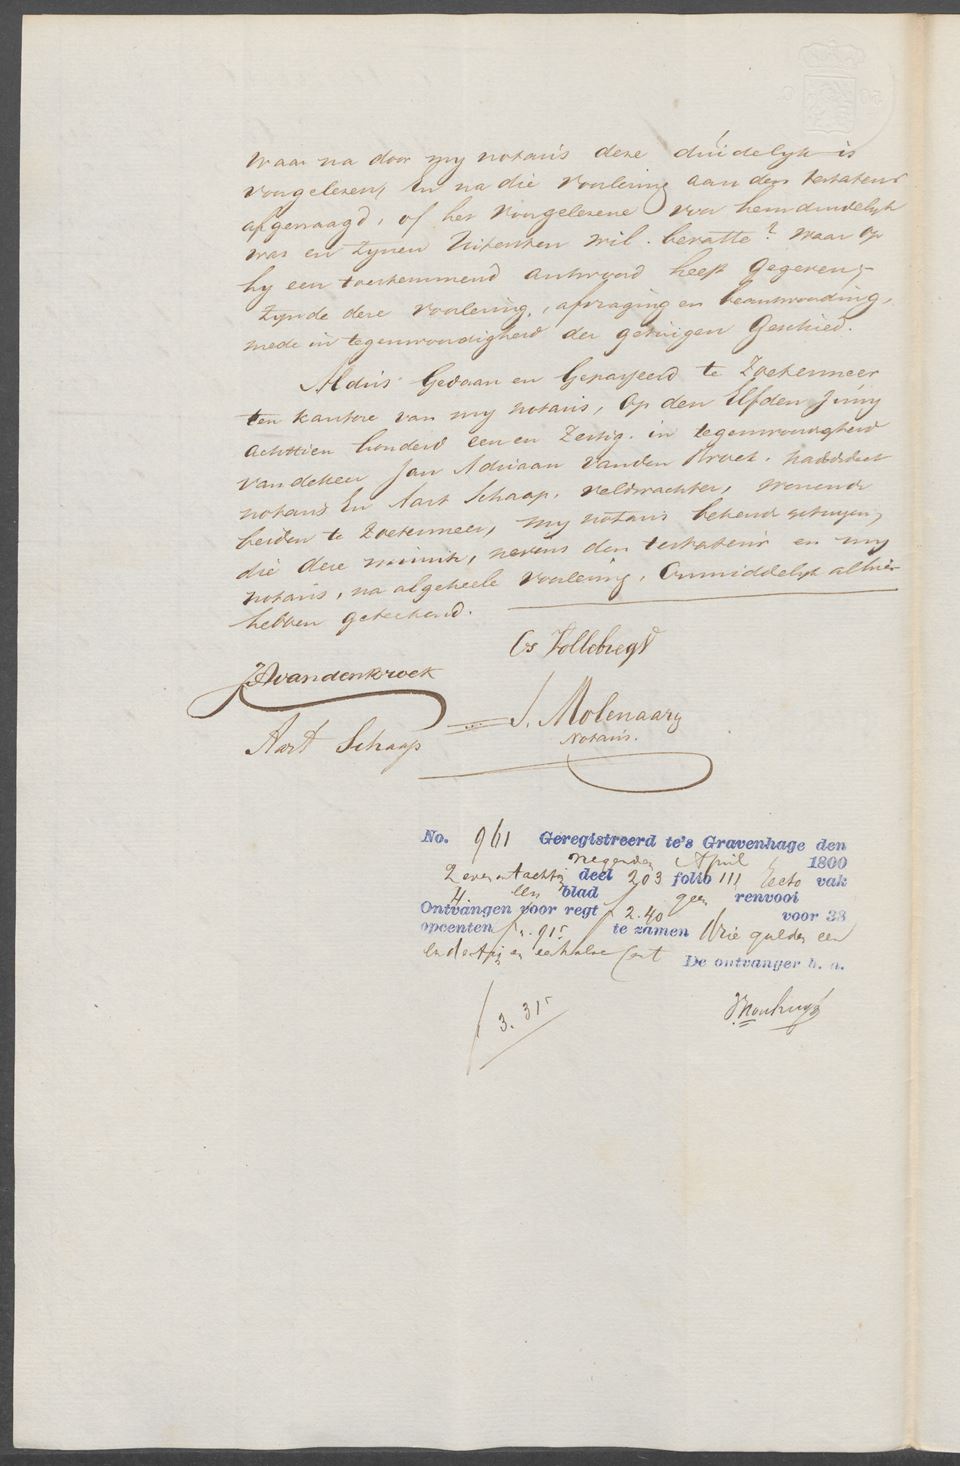 Waar na door my notaris deze duidelyk is
voorgelezen, En na die voorlezing aan den testateur
afgevraagd, of het voorgelezene voor hem duidelyk
was en zynen Uitersten wil bevatte? waar op
hy een toestemmend antwoord heeft gegeven,
zynde deze voorlezing, afvraging en beantwoording,
mede in tegenwoordigheid der getuigen Geschied.
Aldus Gedaan en Gepasseerd te Zoetermeer
ten kantore van my notaris, op den Elfden Juny
achttien honderd een en Zestig. in tegenwoordigheid
van de Heer Jan Adriaan van den Broek. kandidaat
notaris En Aart Schaap, veldwachter, wonende
beiden te Zoetermeer, my notaris bekend getuigen,
die deze minute, nevens den testateur en my
notaris, na algeheele voorlezing, Onmiddelyk alhier
hebben geteekend.
Cs Tollebregt
JAvandenbroek
J. Molenaar
Notaris.
Aart Schaap
No. 961 Geregistreerd te's Gravenhage den
negenden April 1800
Zeven en tachtig deel 203 folio 111 Recto vak
4. Een blad geen renvooi
Ontvangen voor regt f 2.40 voor 38
opcenten f ".915 te zamen Drie gulden een
en dertig en een halve Cent
De ontvanger b. a.
f 3.315